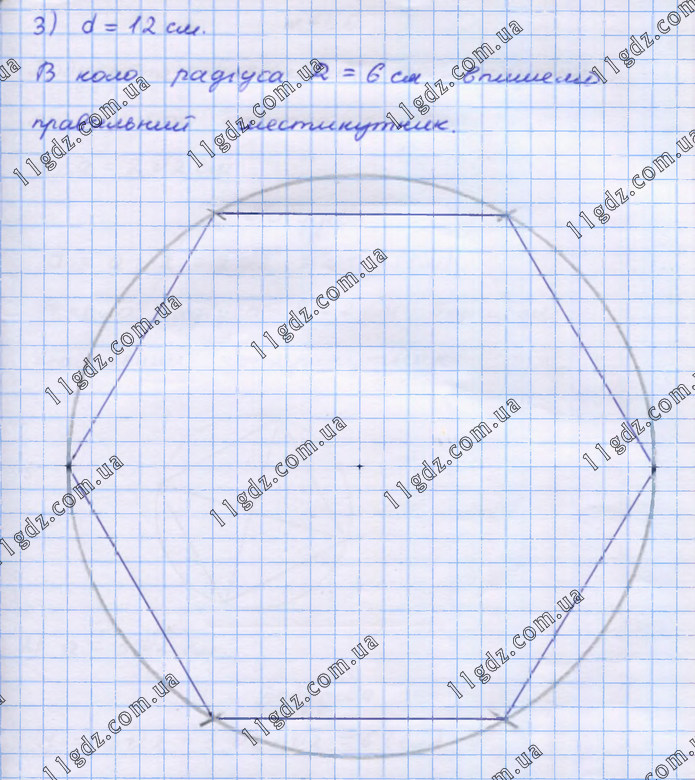 3) d = 12 см.
В коло радіуса R = 6 см впишемо
правильний шестикутник.
11gdz.com.ua
11gdz.com.ua
11gdz.com.ua
11gdz.com.ua
11gdz.com.ua
11gdz.com.ua
11gdz.com.ua
11gdz.com.ua
11gdz.com.ua
11gdz.com.ua
11gdz.com.ua
11gdz.com.ua
11gdz.com.ua
11gdz.com.ua